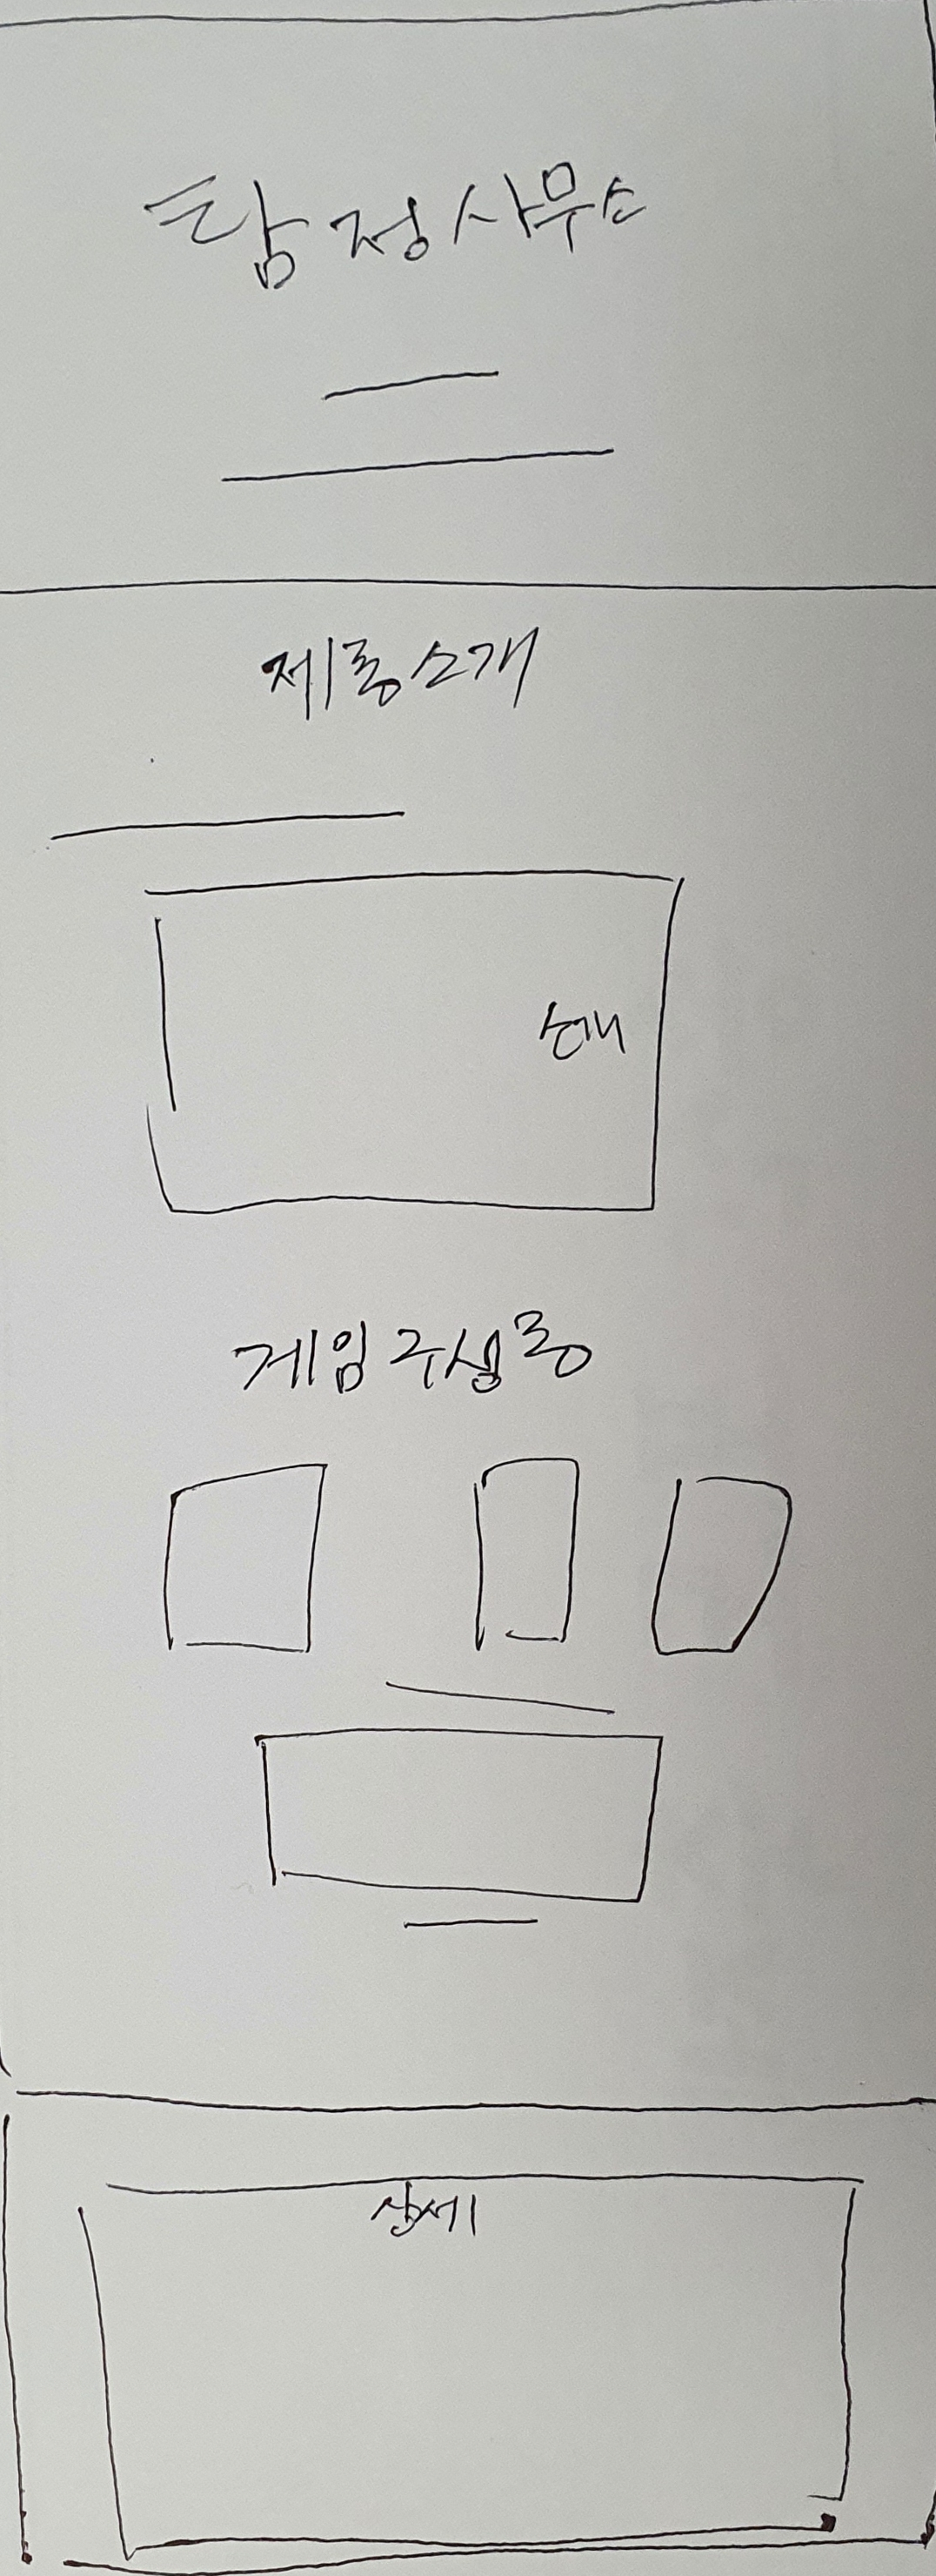 탐정사무소
제품소개
소개
게임구성품
상세